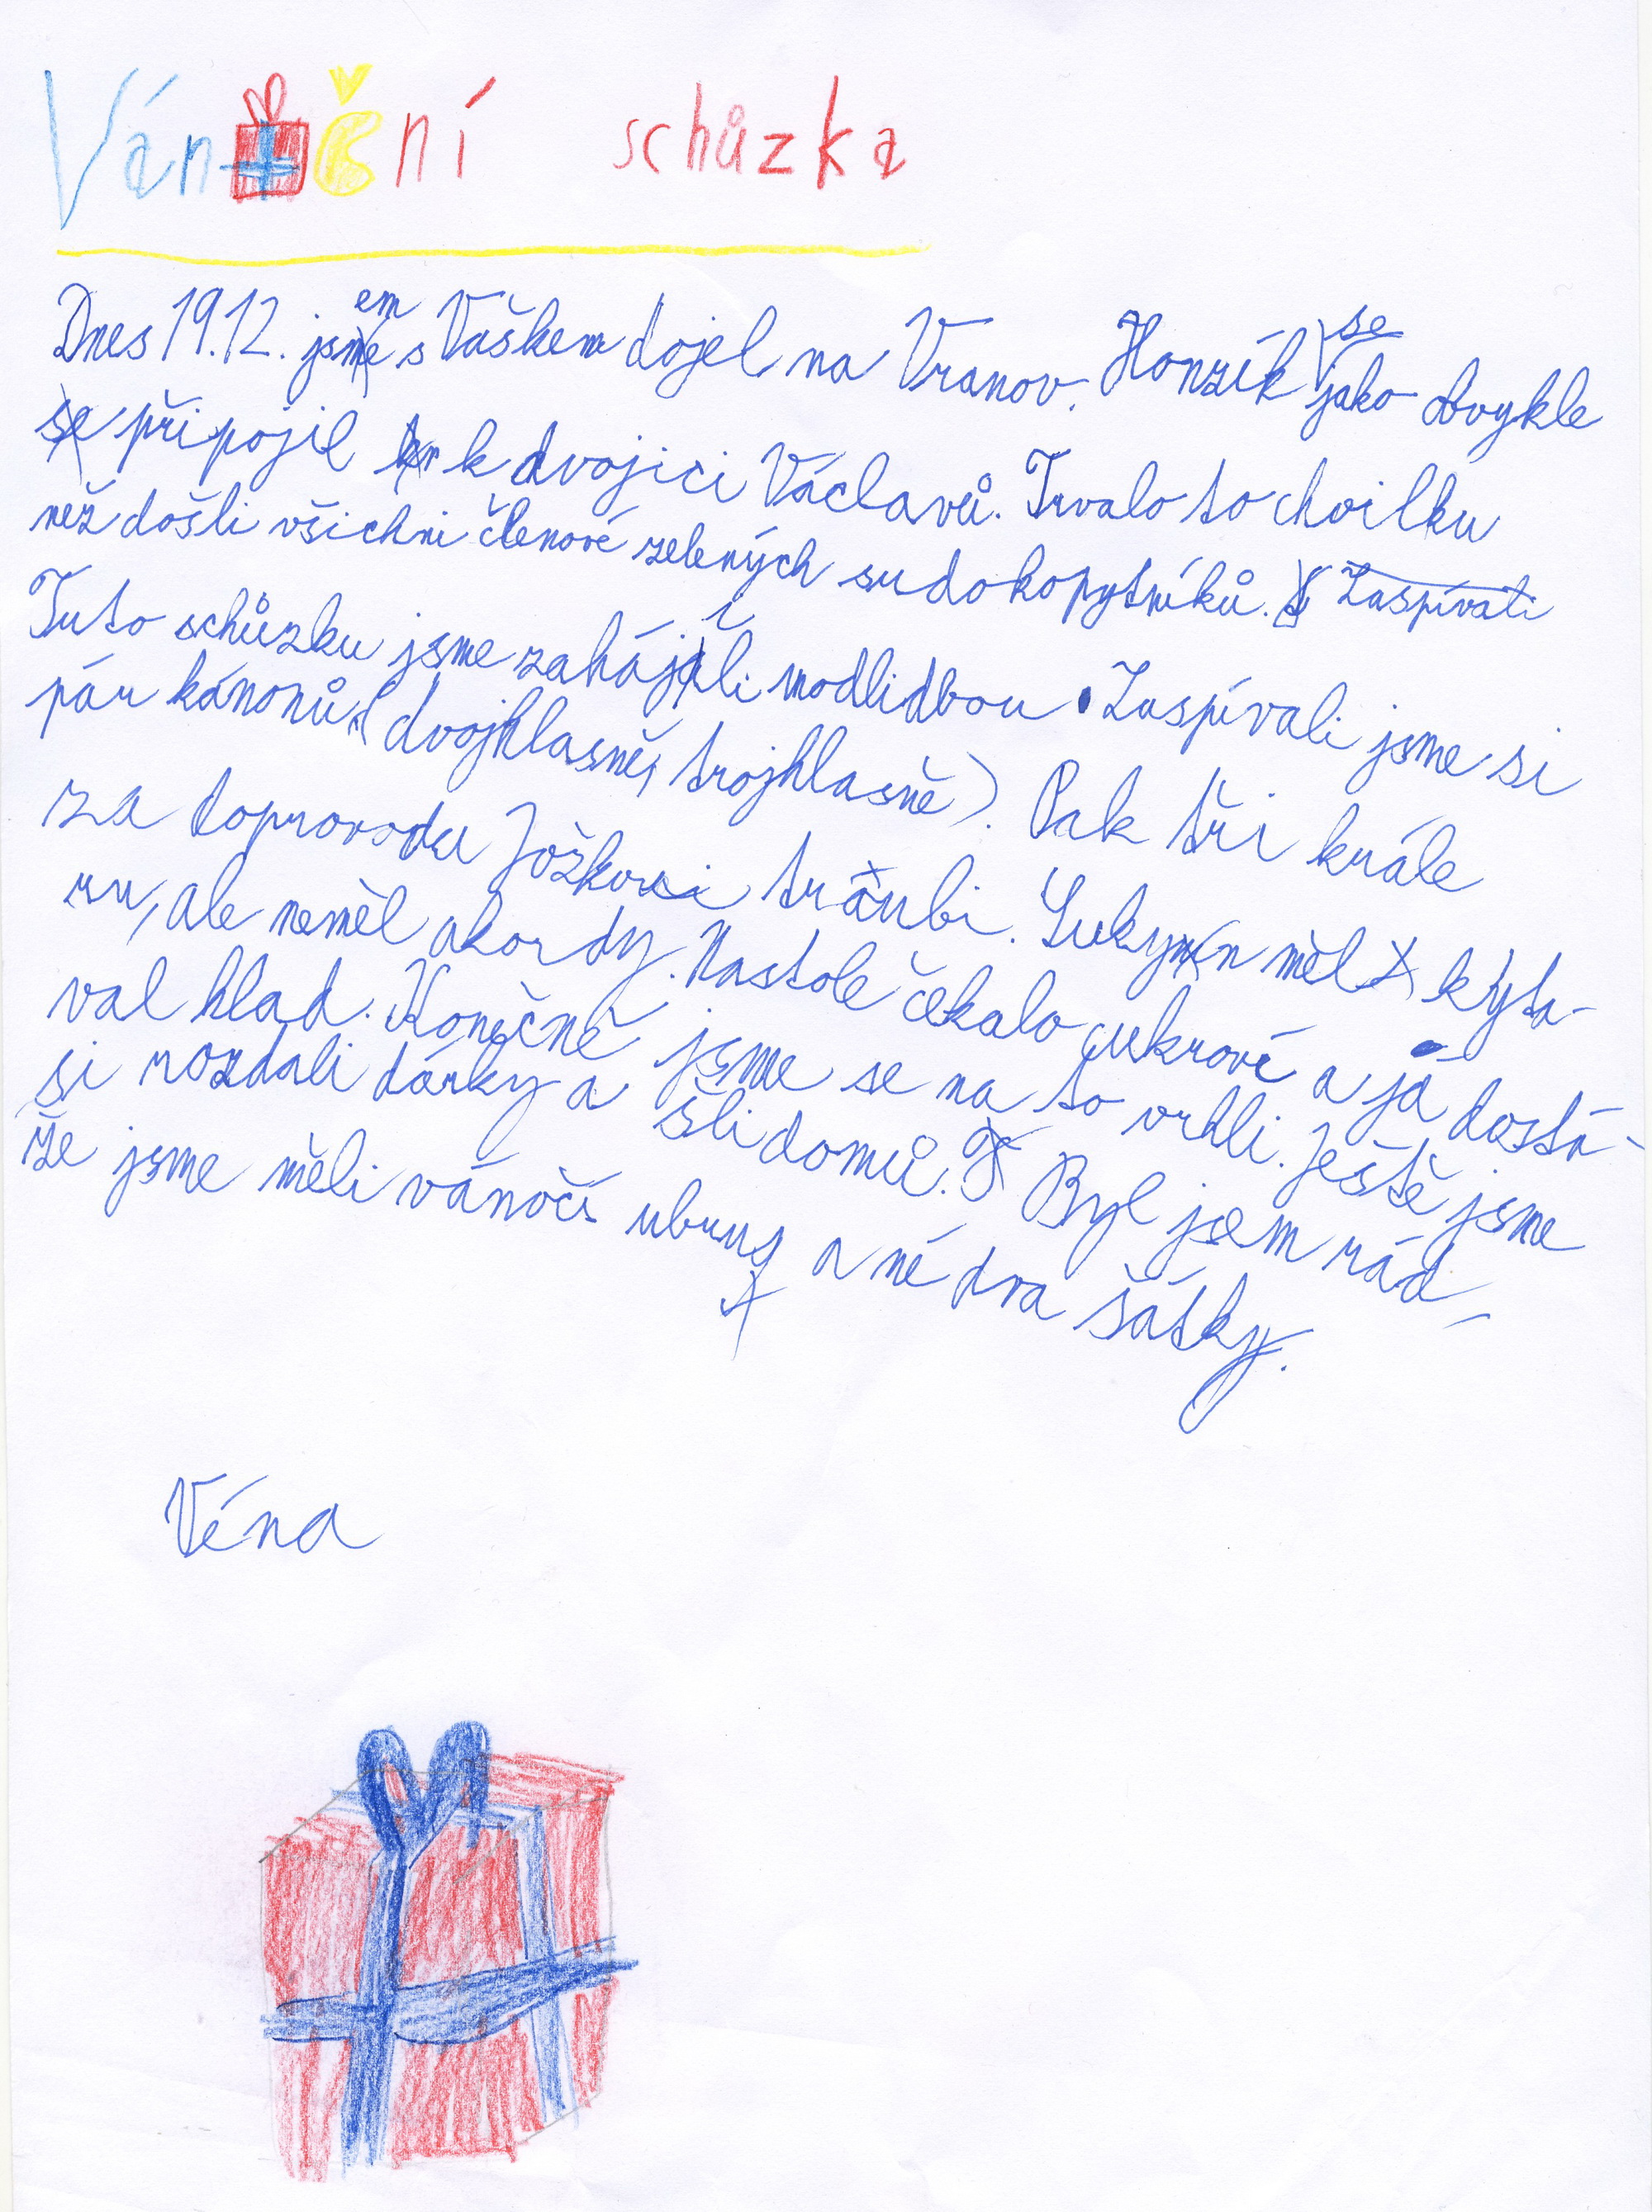 Vánoční schůzka
Dnes 19.12. jsem s Vaškem dojel na Vranov. Honzík se jako obvykle
připojil k dvojici Václavů. Trvalo to chvilku
než došli všichni členové zelených sudokopytníků. Zaspívati
Tuto schůzku jsme zahájili modlidbou. Zaspívali jsme si
pár kánonů (dvojhlasně, trojhlasně). Pak tři krále
za doprovodu Jožkovi traubi. Lukyn měl kyta-
ru, ale neměl akordy. Nastole čekalo cukroví a já dostá-
val hlad. Konečně jsme se na to vrhli. Ještě jsme
si rozdali dárky a šli domů. Byl jsem rád-
že jsme měli vánočí ubrus a né dva šátky.
Véna